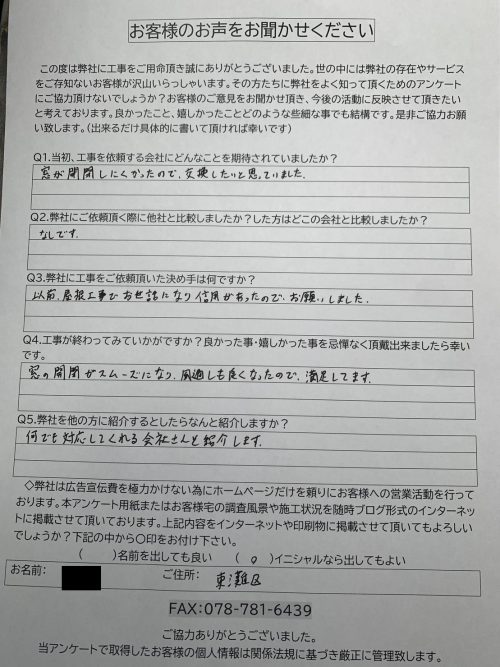 お客様のお声をお聞かせください
この度は弊社に工事をご用命頂き誠にありがとうございました。世の中には弊社の存在やサービス
をご存知ないお客様が沢山いらっしゃいます。その方たちに弊社をよく知って頂くためのアンケート
にご協力頂けないでしょうか？お客様のご意見をお聞かせ頂き、今後の活動に反映させて頂きたい
と考えております。良かったこと、嬉しかったことどのような些細な事でも結構です。是非ご協力お願
い致します。（出来るだけ具体的に書いて頂ければ幸いです）
Q1.当初、工事を依頼する会社にどんなことを期待されていましたか？
窓が開閉しにくかったので、交換したいと思っていました。
Q2.弊社にご依頼頂く際に他社と比較しましたか？した方はどこの会社と比較しましたか？
なしです。
Q3.弊社に工事をご依頼頂いた決め手は何ですか？
以前、屋根工事でお世話になり信用があったので、お願いしました。
Q4.工事が終わってみていかがですか？良かった事・嬉しかった事を忌憚なく頂戴出来ましたら幸い
です。
窓の開閉がスムーズになり、風通しも良くなったので、満足してます。
Q5.弊社を他の方に紹介するとしたらなんと紹介しますか？
何でも対応してくれる会社さんと紹介します。
◇弊社は広告宣伝費を極力かけない為にホームページだけを頼りにお客様への営業活動を行って
おります。本アンケート用紙またはお客様宅の調査風景や施工状況を随時ブログ形式のインターネッ
トに掲載させて頂いております。上記内容をインターネットや印刷物に掲載させて頂いてもよろしい
でしょうか？下記の中から〇印をお付け下さい。
（　　）名前を出しても良い　（ o ）イニシャルなら出してもよい
お名前：　ご住所：　東灘区
FAX：078-781-6439
ご協力ありがとうございました。
当アンケートで取得したお客様の個人情報は関係法規に基づき厳正に管理致します。